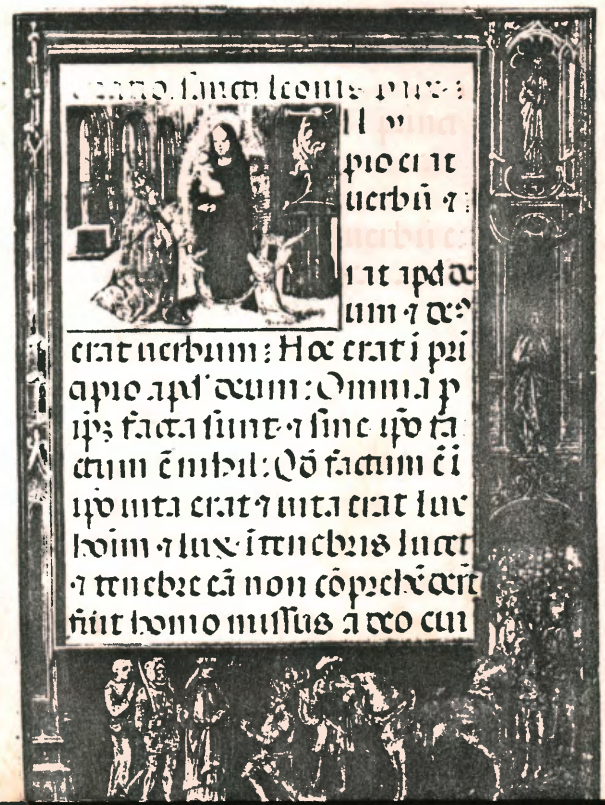 sancti leonis
pio erat
uerbū ⁊
rat apd de
um ⁊ de⁹
erat uerbum : Hoc erat ī pri
cipio apd' deum : Omnia p
ip̄ȝ facta sunt ⁊ sine ip̄o fa
ctum ē nihil : Qđ factum ē ī
ip̄o uita erat ⁊ uita erat lux
hoīm ⁊ lux ī tenebris lucet
⁊ tenebre eā non cōprehēdert̄
fuit homo missus a deo cui